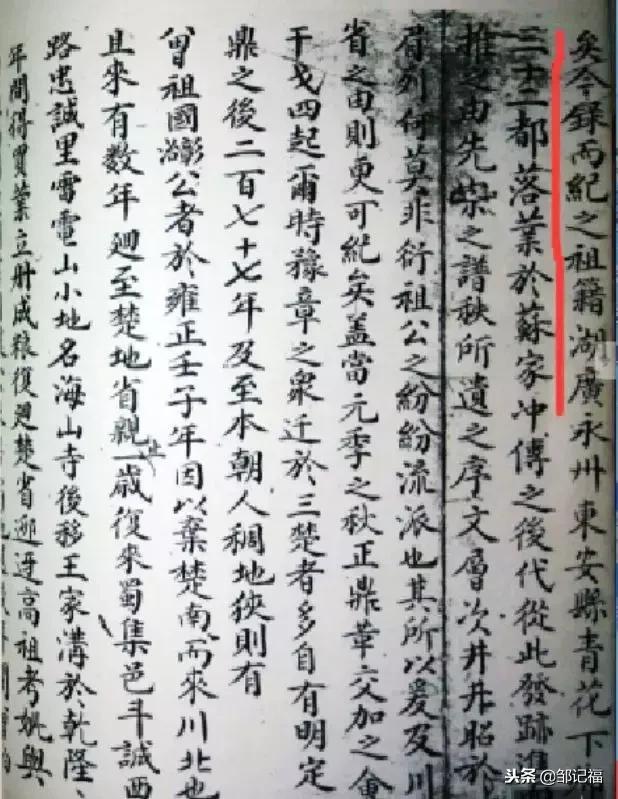 矣今錄而紀之祖籍湖廣永州東安縣青花下
三十二都落業於蘇家冲傳之後代從此發跡
推之由先榮之譜秩所遺之序文層次井井昭於
列何莫非衍祖公之紛紛流派也其所以爰及川
省之由則更可紀矣蓋當元季之秋正鼎革交加之會
干戈四起爾時豫章之衆迁於三楚者多自有明定
鼎之後二百七十七年及至本朝人稠地狹則有
曾祖國澎公者於雍正壬子年因以棄楚南而來川北也
且來有数年廻至楚地省親一歲復來蜀集邑斗誠西
路忠誠里雷電山小地名海山寺後移王家溝於乾隆
年間得買業立册成粮復廻楚省迎迓高祖考妣與
头条@邹记福